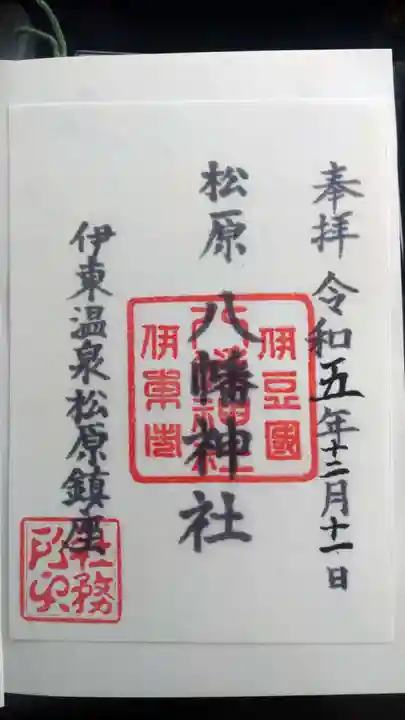 奉拝 令和五年十二月十一日
松原 八幡神社
伊豆國
八幡神社
伊東温泉松原鎮座